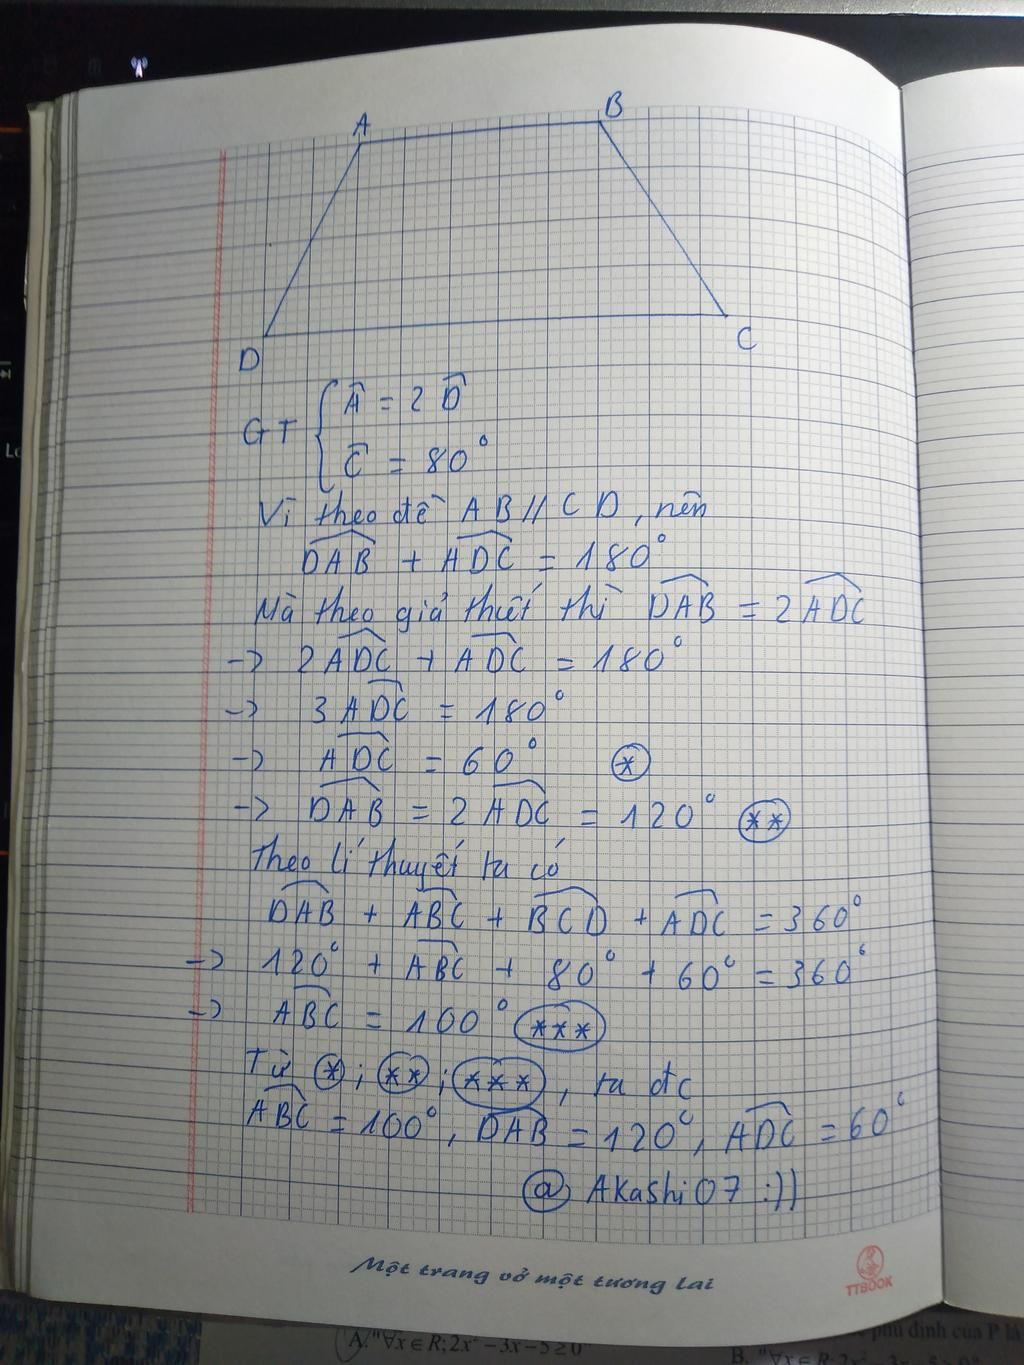 A
B
D
C
GT { Â = 2 D̂
Ĉ = 80°
Vì theo đề AB // CD, nên
DAB̂ + ADĈ = 180°
Mà theo giả thiết thì DAB̂ = 2 ADĈ
-> 2 ADĈ + ADĈ = 180°
-> 3 ADĈ = 180°
-> ADĈ = 60° (*)
-> DAB̂ = 2 ADĈ = 120° (**)
Theo lí thuyết ta có
DAB̂ + ABĈ + BCD̂ + ADĈ = 360°
-> 120° + ABĈ + 80° + 60° = 360°
-> ABĈ = 100° (***)
Từ (*) ; (**) ; (***) , ta đc
ABĈ = 100°, DAB̂ = 120°, ADĈ = 60°
@ Akashi07 :))
Một trang vở một tương lai
TTBOOK
A. "∀x ∈ R; 2x² - 3x - 5 ≥ 0"
phủ định của P là
B. "∀x ∈ R